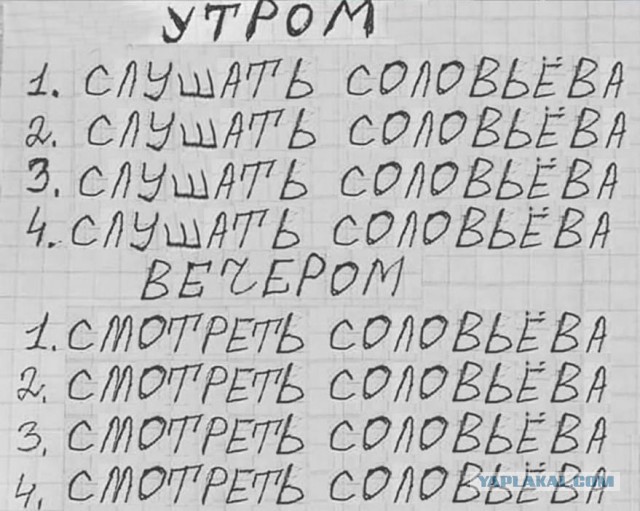 УТРОМ
1. СЛУШАТЬ СОЛОВЬЁВА
2. СЛУШАТЬ СОЛОВЬЁВА
3. СЛУШАТЬ СОЛОВЬЁВА
4. СЛУШАТЬ СОЛОВЬЁВА
ВЕЧЕРОМ
1. СМОТРЕТЬ СОЛОВЬЁВА
2. СМОТРЕТЬ СОЛОВЬЁВА
3. СМОТРЕТЬ СОЛОВЬЁВА
4. СМОТРЕТЬ СОЛОВЬЁВА
YAPLAKAL.COM